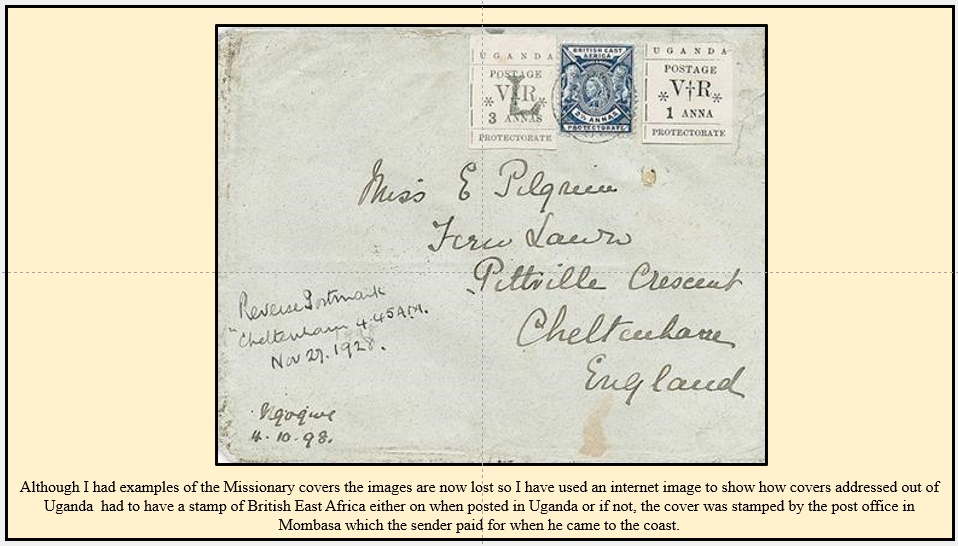 UGANDA
POSTAGE
V R
L
3 ANNAS
PROTECTORATE
BRITISH EAST
AFRICA
2½ ANNAS
PROTECTORATE
UGANDA
POSTAGE
V†R
1 ANNA
PROTECTORATE
Miss E Pilgrim
Fern Lawn
Pittville Crescent
Cheltenham
England
Reverse Postmark
"Cheltenham 4.45AM.
Nov 27. 1928.
Ngogwe
4.10.98.
Although I had examples of the Missionary covers the images are now lost so I have used an internet image to show how covers addressed out of
Uganda had to have a stamp of British East Africa either on when posted in Uganda or if not, the cover was stamped by the post office in
Mombasa which the sender paid for when he came to the coast.